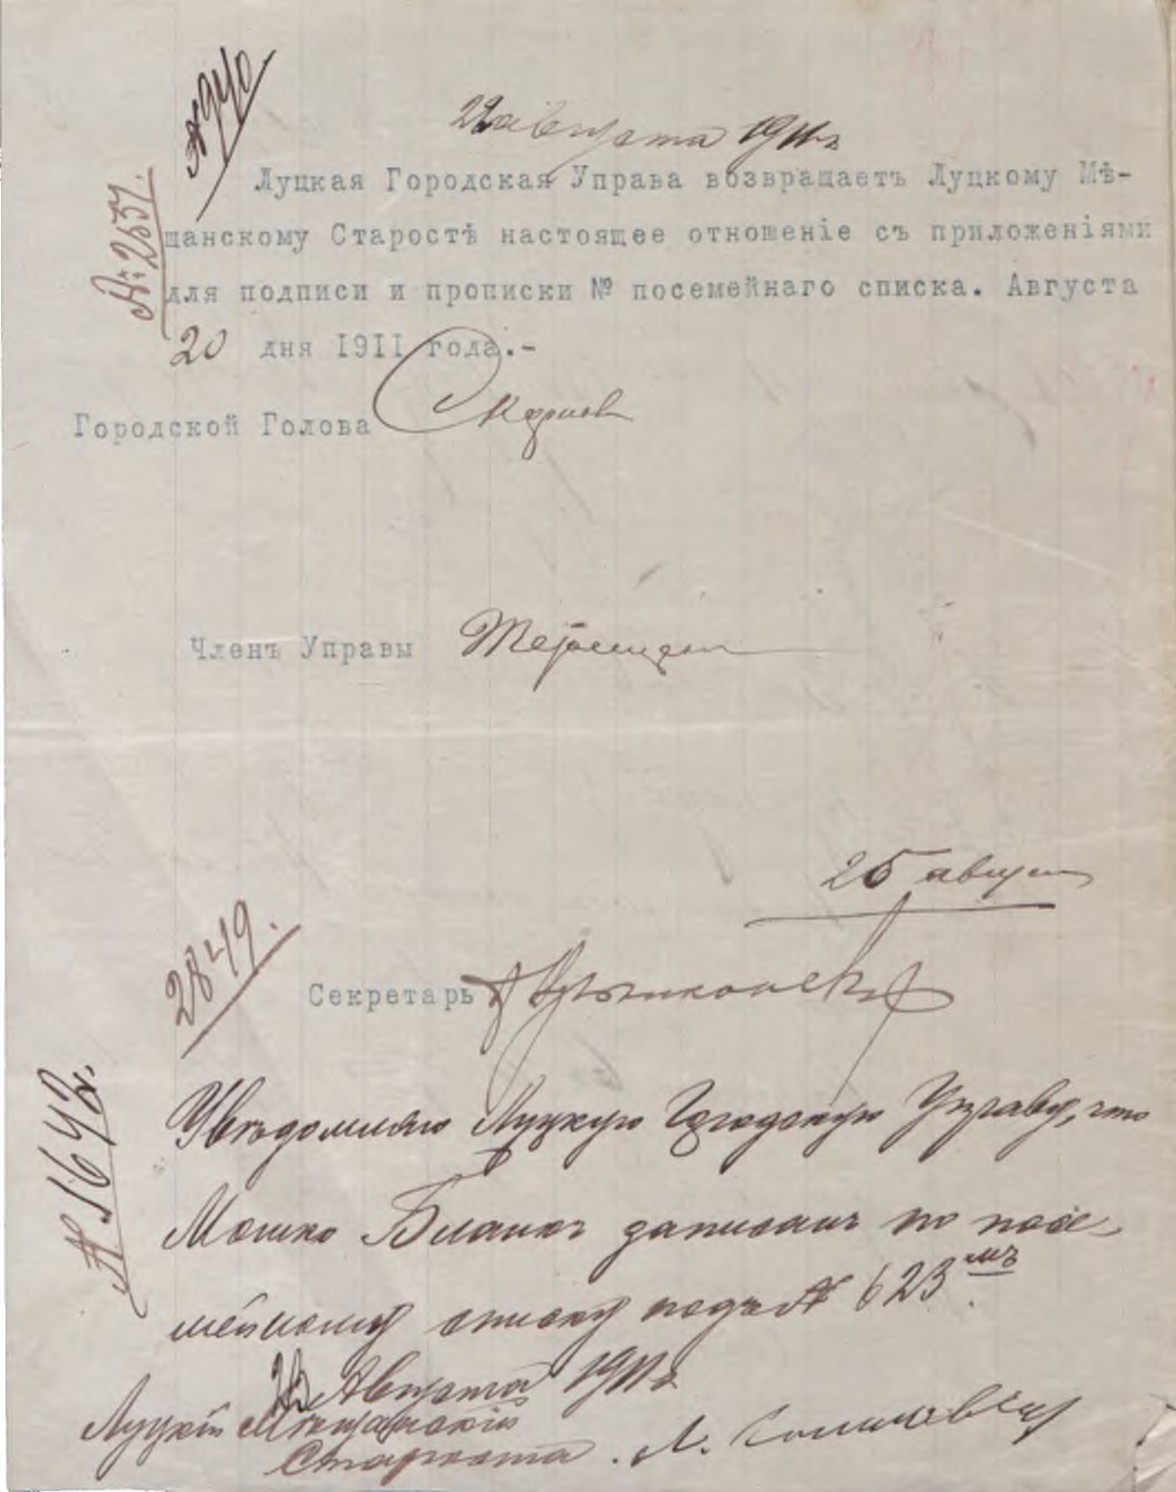 № 940
22 августа 1911 г
№ 2537.
Луцкая Городская Управа возвращаетъ Луцкому Мѣ-
щанскому Старостѣ настоящее отношеніе съ приложеніями
для подписи и прописки № посемейнаго списка. Августа
20 дня 1911 года.-
Городской Голова
Членъ Управы
25 август
2849.
Секретарь
№ 1642.
Увѣдомляю Луцкую Городскую Управу, что
Мошко Бланкъ записанъ по посе-
мейному списку подъ № 623 мъ
Августа 1911 г
Луцкій Мѣщанскій
Староста.